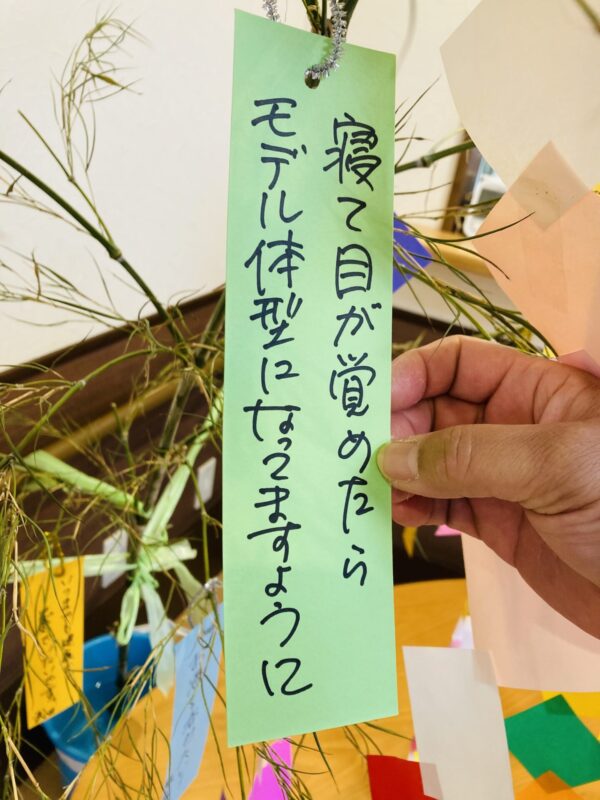 寝て目が覚めたら
モデル体型になってますように